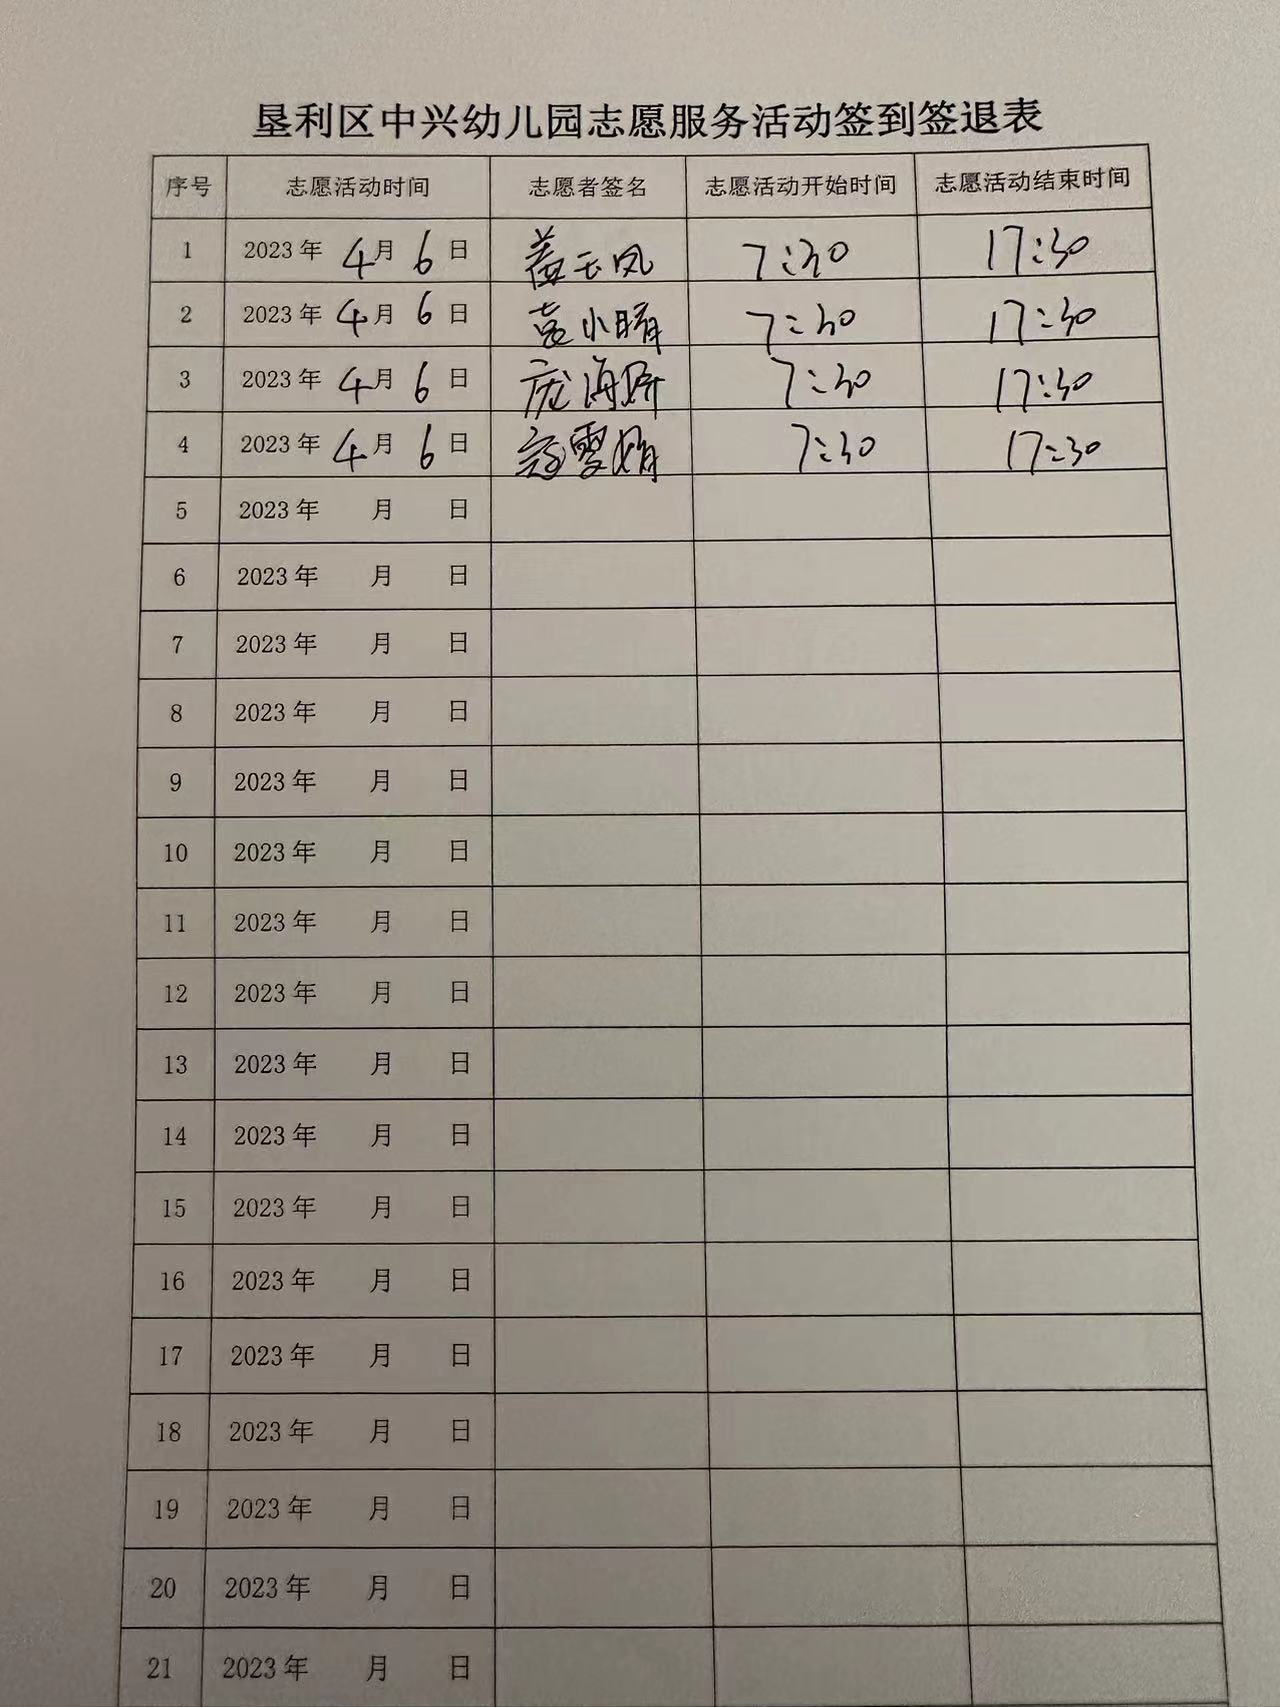 垦利区中兴幼儿园志愿服务活动签到签退表
序号 志愿活动时间 志愿者签名 志愿活动开始时间 志愿活动结束时间
1 2023年 4月 6日 盖玉凤 7:30 17:30
2 2023年 4月 6日 袁小晴 7:30 17:30
3 2023年 4月 6日 庞海娇 7:30 17:30
4 2023年 4月 6日 寇雪娟 7:30 17:30
5 2023年 月 日
6 2023年 月 日
7 2023年 月 日
8 2023年 月 日
9 2023年 月 日
10 2023年 月 日
11 2023年 月 日
12 2023年 月 日
13 2023年 月 日
14 2023年 月 日
15 2023年 月 日
16 2023年 月 日
17 2023年 月 日
18 2023年 月 日
19 2023年 月 日
20 2023年 月 日
21 2023年 月 日